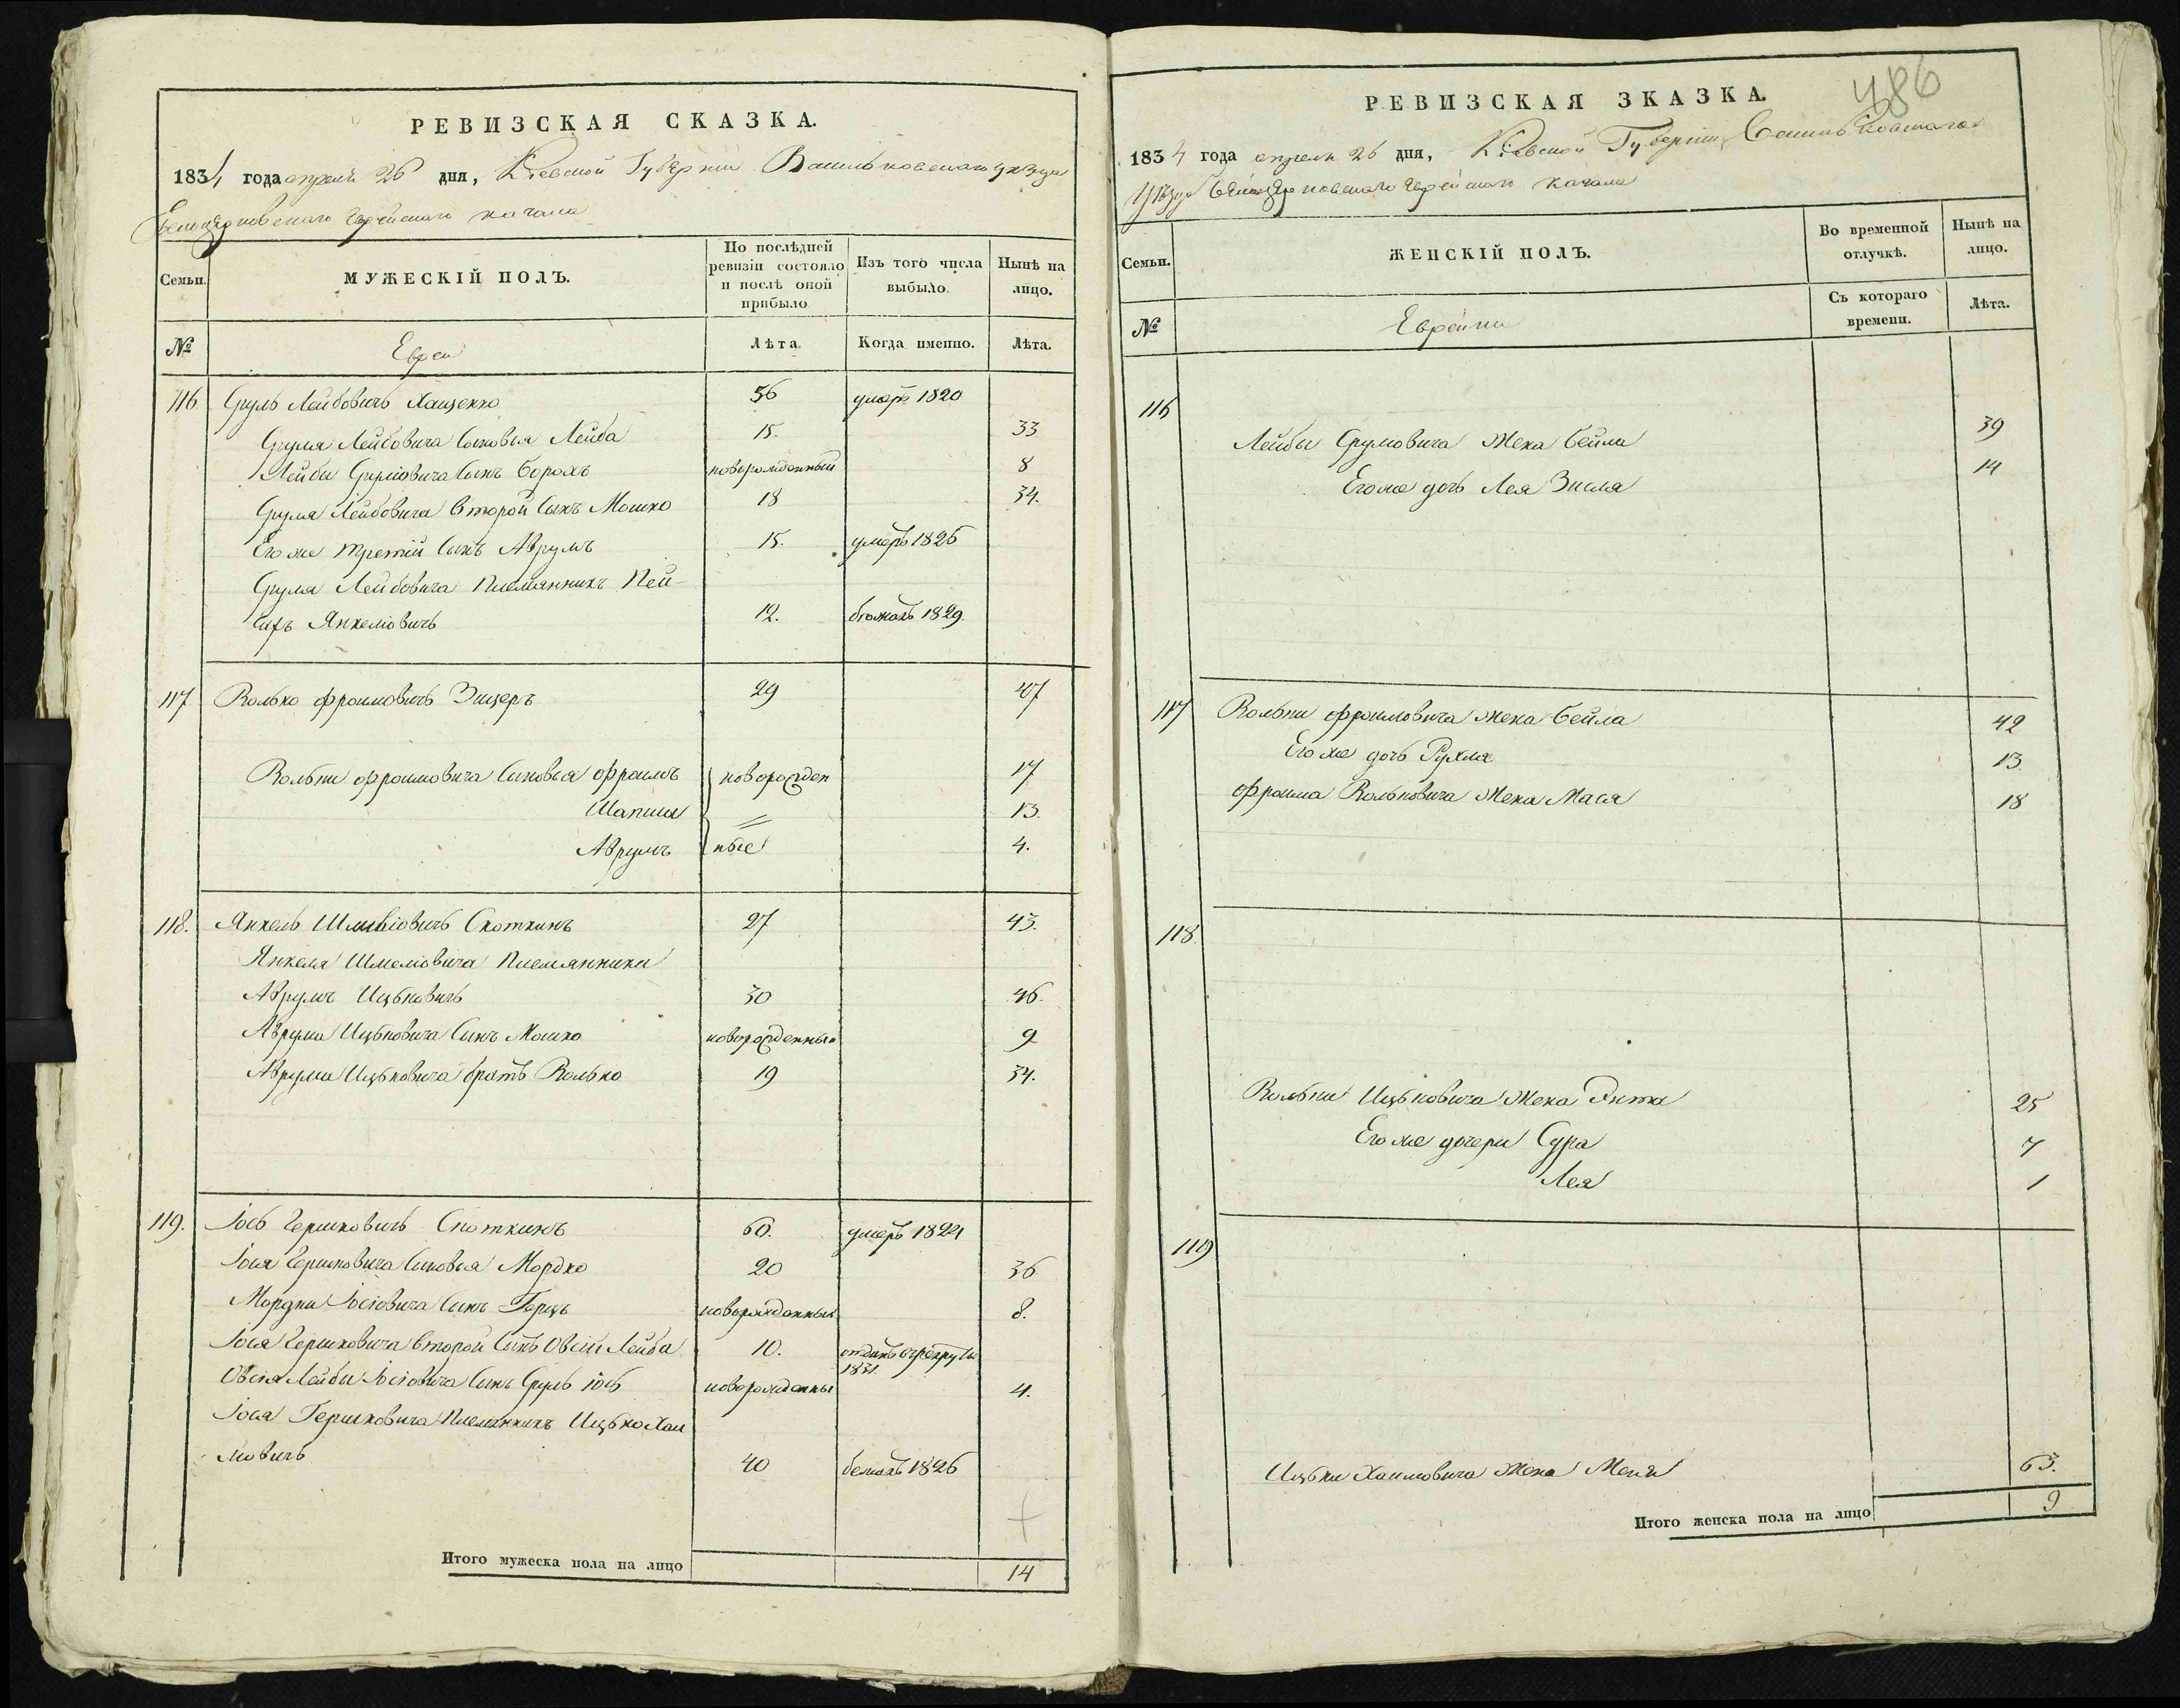 РЕВИЗСКАЯ СКАЗКА.
1834 года апреля 26 дня, Кіевской Губерніи Васильковскаго уѣзда
Белоцерковскаго Еврейскаго кагала
Семьи.
МУЖЕСКІЙ ПОЛЪ.
По послѣдней ревизіи состояло и послѣ оной прибыло
Изъ того числа выбыло.
Нынѣ на лицо.
№
Евреи
Лѣта.
Когда именно.
Лѣта.
116 Сруль Лейбовичъ Хащенко 56 умеръ 1820
Сруля Лейбовича Сыновья Лейба 15. 33
Лейбы Срулiовича Сынъ Борохъ новорожденный 8
Сруля Лейбовича Второй Сынъ Мошко 18 34.
Его же третій Сынъ Аврумъ 15. умеръ 1826
Сруля Лейбовича Племянникъ Пей-
сихъ Янкелiовичъ 12. бежалъ 1829
117 Волько Фроимовичъ Зицеръ 29 47
Вольки Фроимовича Сыновья Фроимъ новорожден 17
Шапша 〃 13.
Аврумъ ные 4.
118. Янкель Шмелiовичъ Скоткинъ 27 43.
Янкеля Шмелiовича Племянники
Аврумъ Ицьковичъ 30 46.
Аврума Ицьковича Сынъ Мошко новорожденный 9
Аврума Ицьковича братъ Волько 19 34.
119. Іось Гершковичъ Скоткинъ 60. умеръ 1824
Іося Гершковича Сыновья Мордко 20 36
Мордки Іосiовича Сынъ Герць новорожденный 8.
Іося Гершковича Второй Сынъ Овсій Лейба 10. отданъ въ рекруты
1831
Овсія Лейбы Іосiовича Сынъ Сруль Іось новорожденны 4.
Іося Гершковича Племянникъ Ицько Хаи
мовичъ 40 бежалъ 1826
Итого мужеска пола на лицо 14
РЕВИЗСКАЯ ЗКАЗКА.
486
1834 года апреля 26 дня, Кіевской Губерніи Васильковскаго
Уѣзда Белоцерковскаго Еврейскаго кагала
Семьи.
ЖЕНСКІЙ ПОЛЪ.
Во временной отлучкѣ.
Нынѣ на лицо.
№
Еврейки
Съ котораго времени.
Лѣта.
116
Лейбы Срулiовича Жена Бейла 39
Его же дочь Лея Зисля 14
117 Вольки Фроимовича Жена Бейла 42
Его же дочь Рухля 13
Фроима Вольковича Жена Мася 18
118.
Вольки Ицьковича Жена Энта 25
Его же дочери Сура 7
Лея 1
119
Ицьки Хаимовича Жена Меня 63.
Итого женска пола на лицо 9